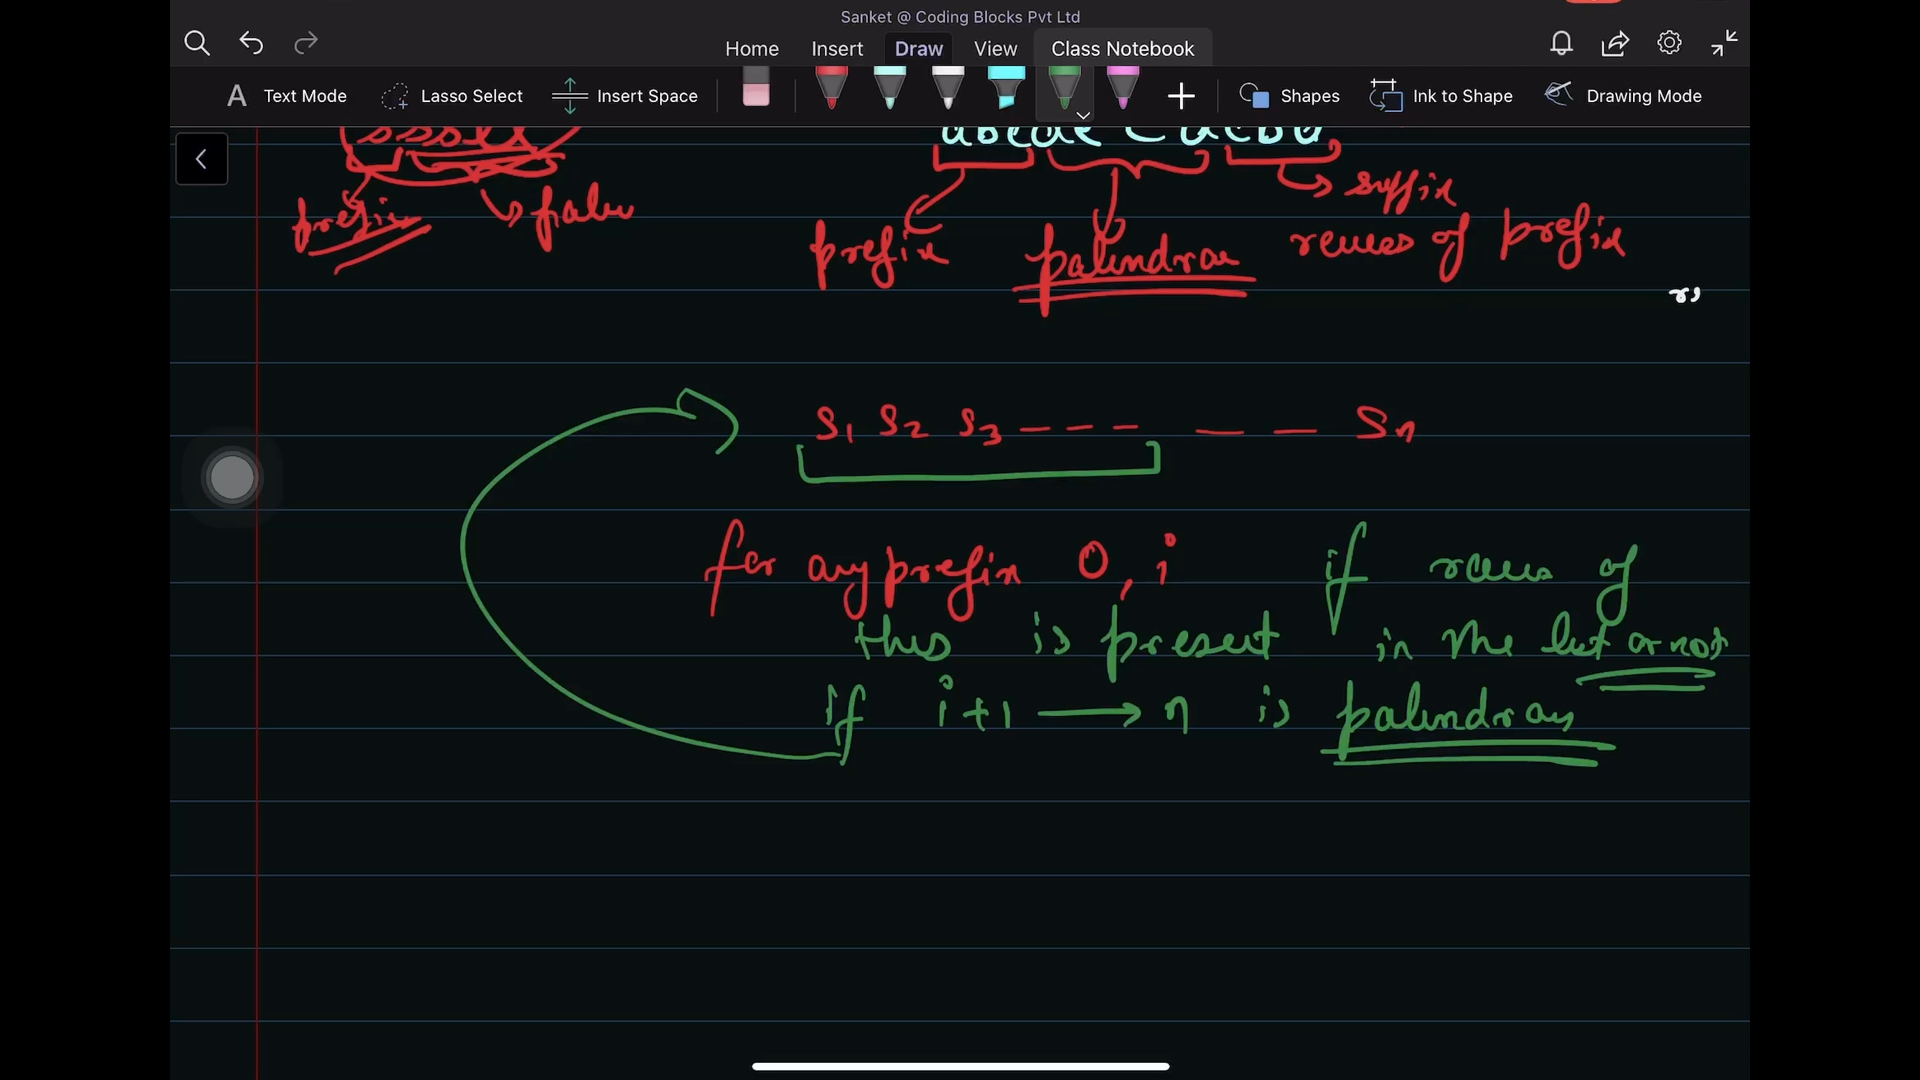 Sanket @ Coding Blocks Pvt Ltd
Home Insert Draw View Class Notebook
A Text Mode Lasso Select Insert Space Shapes Ink to Shape Drawing Mode
suffix
prefix
prefix palindrae of prefix
S1 S2 S3 --- -- Sn
for any prefix 0, i if of
this is present in the list or not
if i+1 → n is palindrom